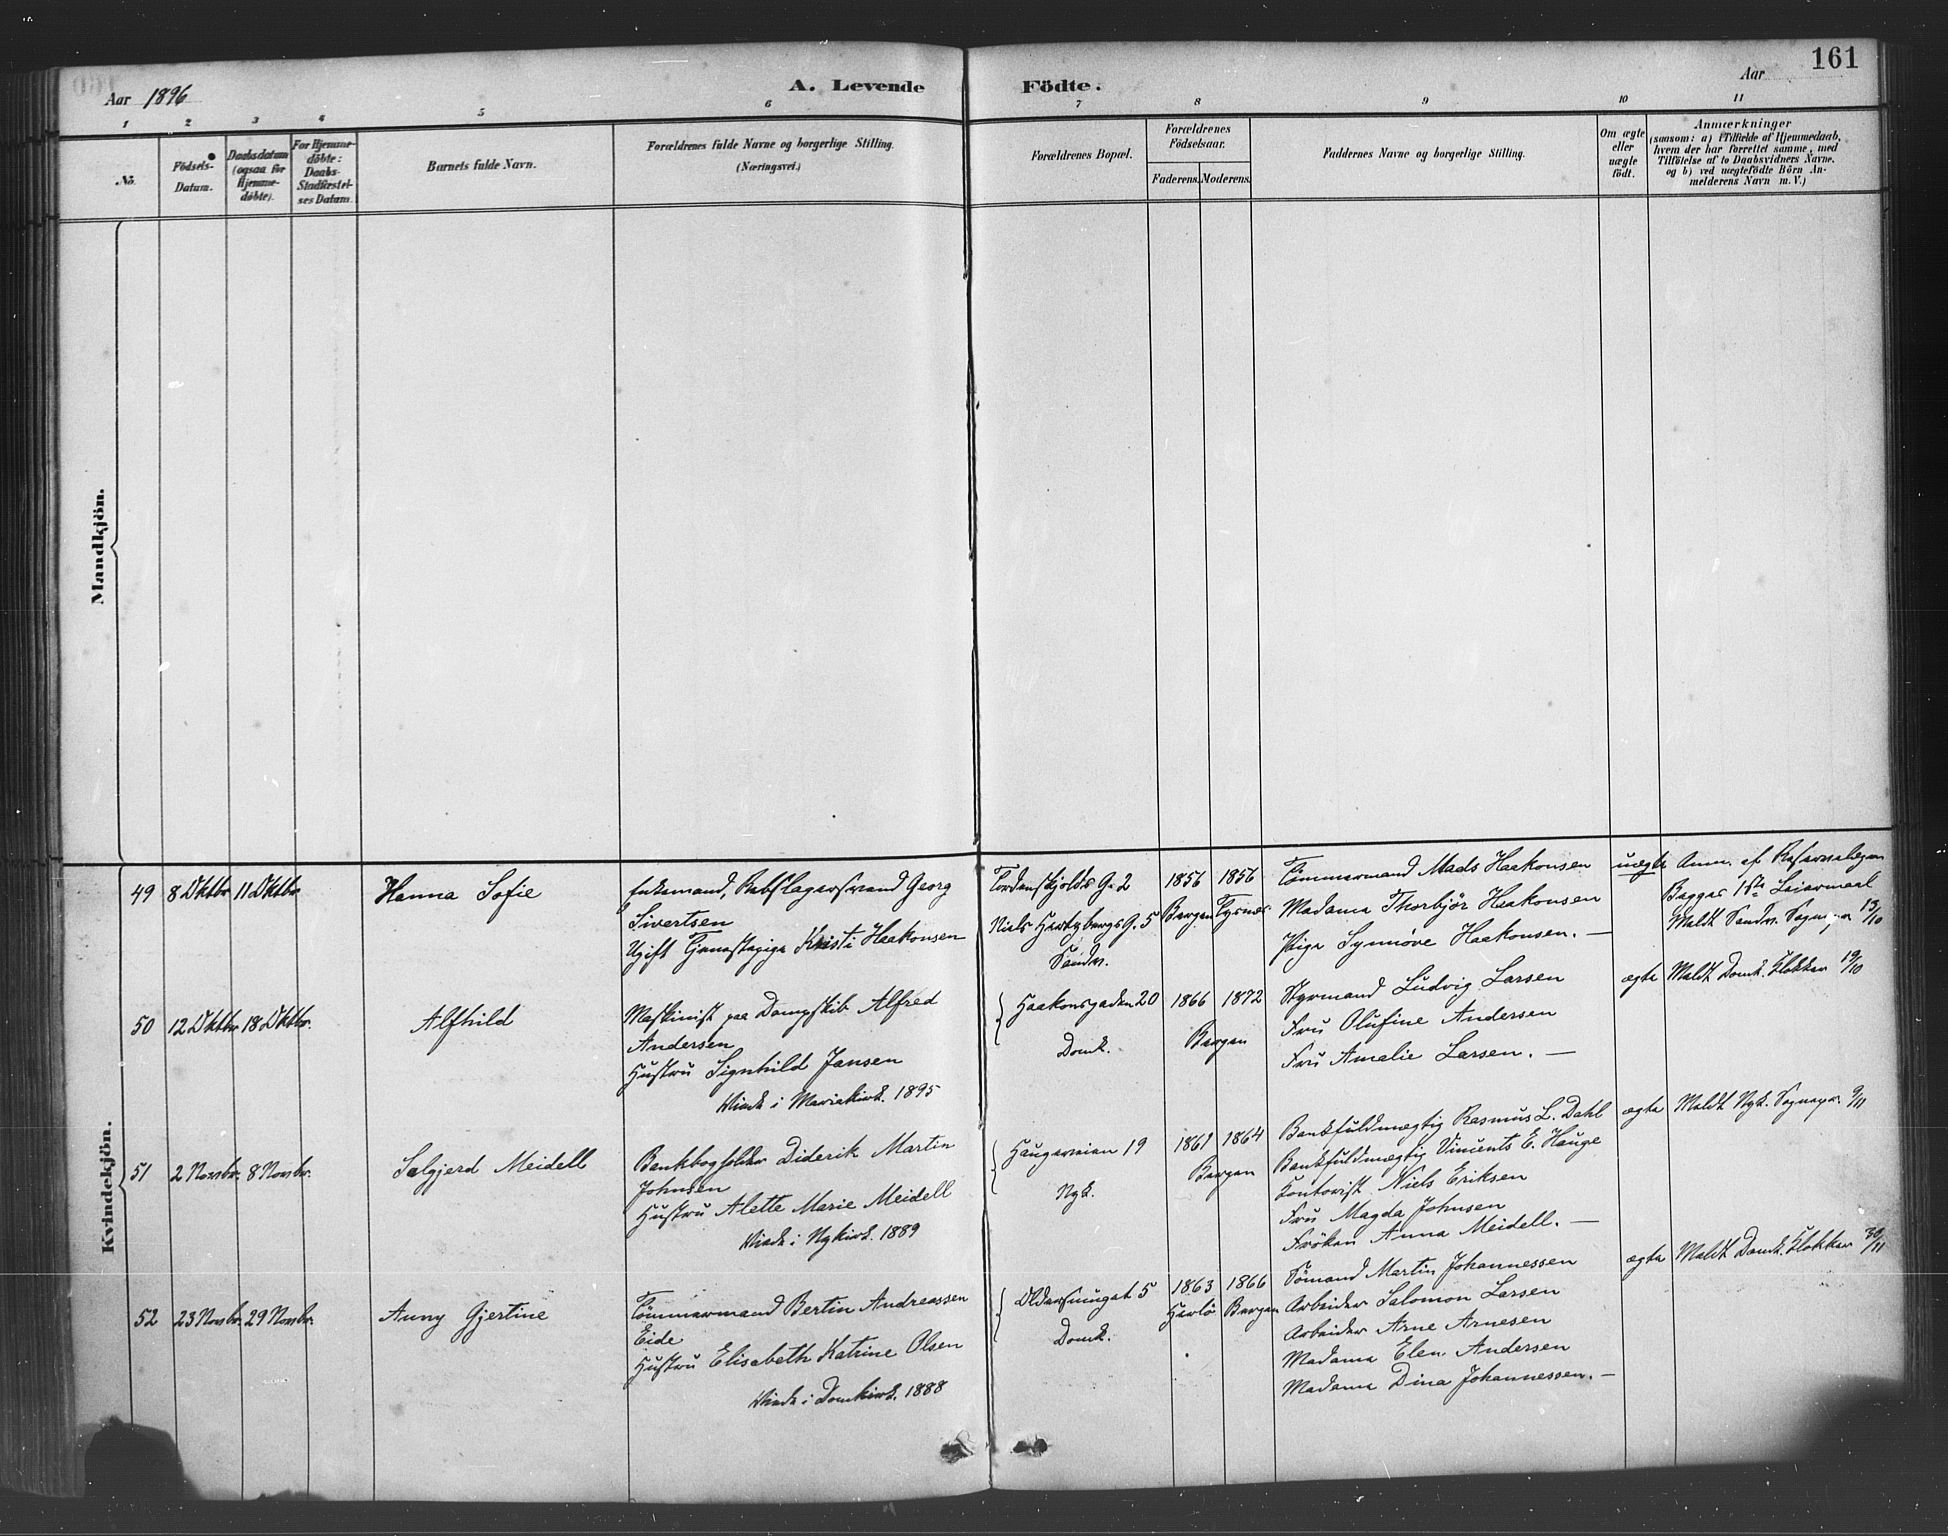 161
Aar 1896
A. Levende
Födte.
Aar
1 2 3 4 5 6 7 8 9 10 11
No.
Födsels-
Datum.
Daabsdatum
(ogsaa for
Hjemme-
döbte).
For Hjemme-
döbte:
Daabs-
Stadfæstel-
ses Datum.
Barnets fulde Navn.
Forældrenes fulde Navne og borgerlige Stilling.
(Næringsvei.)
Forældrenes Bopæl.
Forældrenes
Födselsaar.
Faderens. Moderens.
Faddernes Navne og borgerlige Stilling.
Om ægte
eller
uægte
födt.
Anmærkninger
(saasom: a) i Tilfælde af Hjemmedaab,
hvem der har forrettet samme, med
Tilföielse af to Daabsvidners Navne,
og b) ved uægtefödte Börn An-
melderens Navn m. V.)
Mandkjön.
Kvindekjön.
49 8 Oktbr. 11 Oktbr.
Hanna Sofie
Enkemand, Rebslagersvend Georg
Sivertsen
Ugift Tjenestepige Kristi Haakonsen
Tordenskjolds G. 2
Niels Hertzbergs G. 5
Sandv.
1856 1856
Bergen Tysnes
Tömmermand Mads Haakonsen
Madame Thorbjör Haakonsen
Pige Synnöve Haakonsen. —
uægte
Anm. af
Begges 1ste Leiermaal
Meldt Sandv. Sognepr. 13/10
50 12 Oktbr. 18 Oktbr.
Alfhild
Maskinist paa Dampskib Alfred
Andersen
Hustru Signhild Jansen
Viede i Mariakirk. 1895
Haakonsgaden 20
Domk.
1866 1872
Bergen
Styrmand Ludvig Larsen
Fru Olufine Andersen
Fru Amalie Larsen. —
ægte
Meldt Domk. Klokker 19/10
51 2 Novbr. 8 Novbr.
Salgjerd Meidell
Bankbogholder Diderik Martin
Johnsen
Hustru Alette Marie Meidell
Viede i Nykirk. 1889
Haugeveien 19
Nyk.
1861 1864
Bergen
Bankfuldmægtig Rasmus L. Dahl
Bankfuldmægtig Vincents E. Hauge
Kontorist Niels Eriksen
Fru Magda Johnsen
Fröken Anna Meidell. —
ægte
Meldt Nyk. Sognepr. 9/11
52 23 Novbr. 29 Novbr.
Anny Gjertine
Tömmermand Bertin Andreassen
Eide
Hustru Elisabeth Katrine Olsen
Viede i Domkirk. 1888
Oldersmuget 5
Domk.
1863 1866
Herlö Bergen
Sömand Martin Johannessen
Arbeider Salomon Larsen
Arbeider Arne Arnesen
Madame Elen Andersen
Madame Dina Johannessen. —
ægte
Meldt Domk. Klokker 30/11